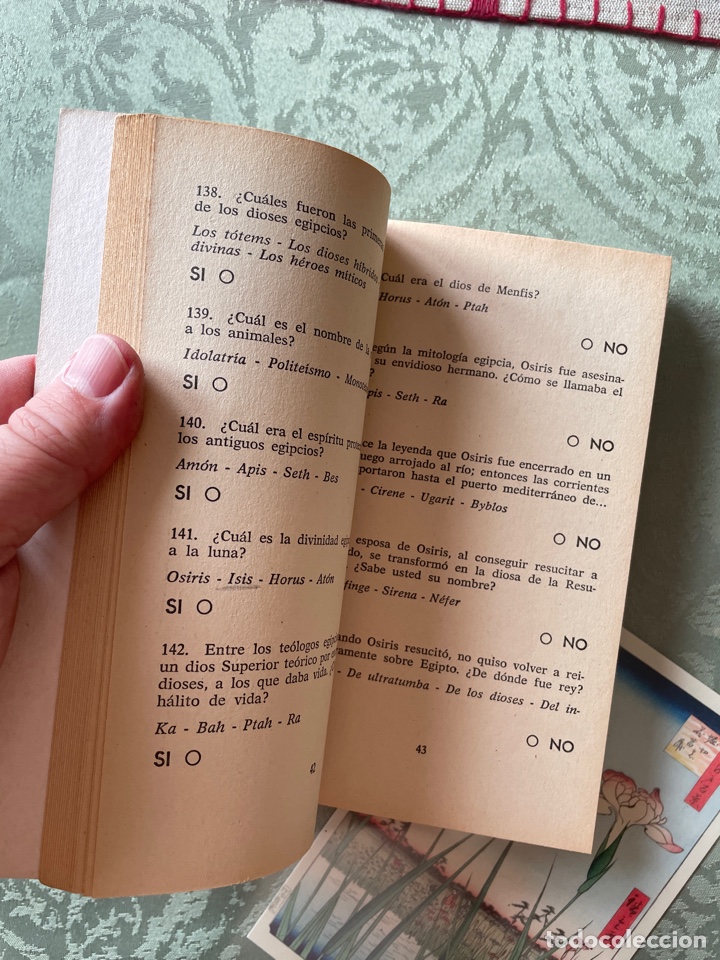 138. ¿Cuáles fueron las
de los dioses egipcios?
Los tótems - Los dioses
divinas - Los héroes míticos
SI O
139. ¿Cuál es el nombre de
a los animales?
Idolatría - Politeísmo -
SI O
140. ¿Cuál era el espíritu
los antiguos egipcios?
Amón - Apis - Seth - Bes
SI O
141. ¿Cuál es la divinidad
a la luna?
Osiris - Isis - Horus - Atón
SI O
142. Entre los teólogos
un dios Superior teórico por
dioses, a los que daba vida.
hálito de vida?
Ka - Bah - Ptah - Ra
SI O
42
Cuál era el dios de Menfis?
Horus - Atón - Ptah
O NO
egún la mitología egipcia, Osiris fue asesina-
su envidioso hermano. ¿Cómo se llamaba el
?
pis - Seth - Ra
O NO
ce la leyenda que Osiris fue encerrado en un
uego arrojado al río; entonces las corrientes
portaron hasta el puerto mediterráneo de...
- Cirene - Ugarit - Byblos
O NO
esposa de Osiris, al conseguir resucitar a
do, se transformó en la diosa de la Resu-
¿Sabe usted su nombre?
finge - Sirena - Néfer
O NO
ando Osiris resucitó, no quiso volver a rei-
ramente sobre Egipto. ¿De dónde fue rey?
- De ultratumba - De los dioses - Del in-
O NO
43
todocoleccion